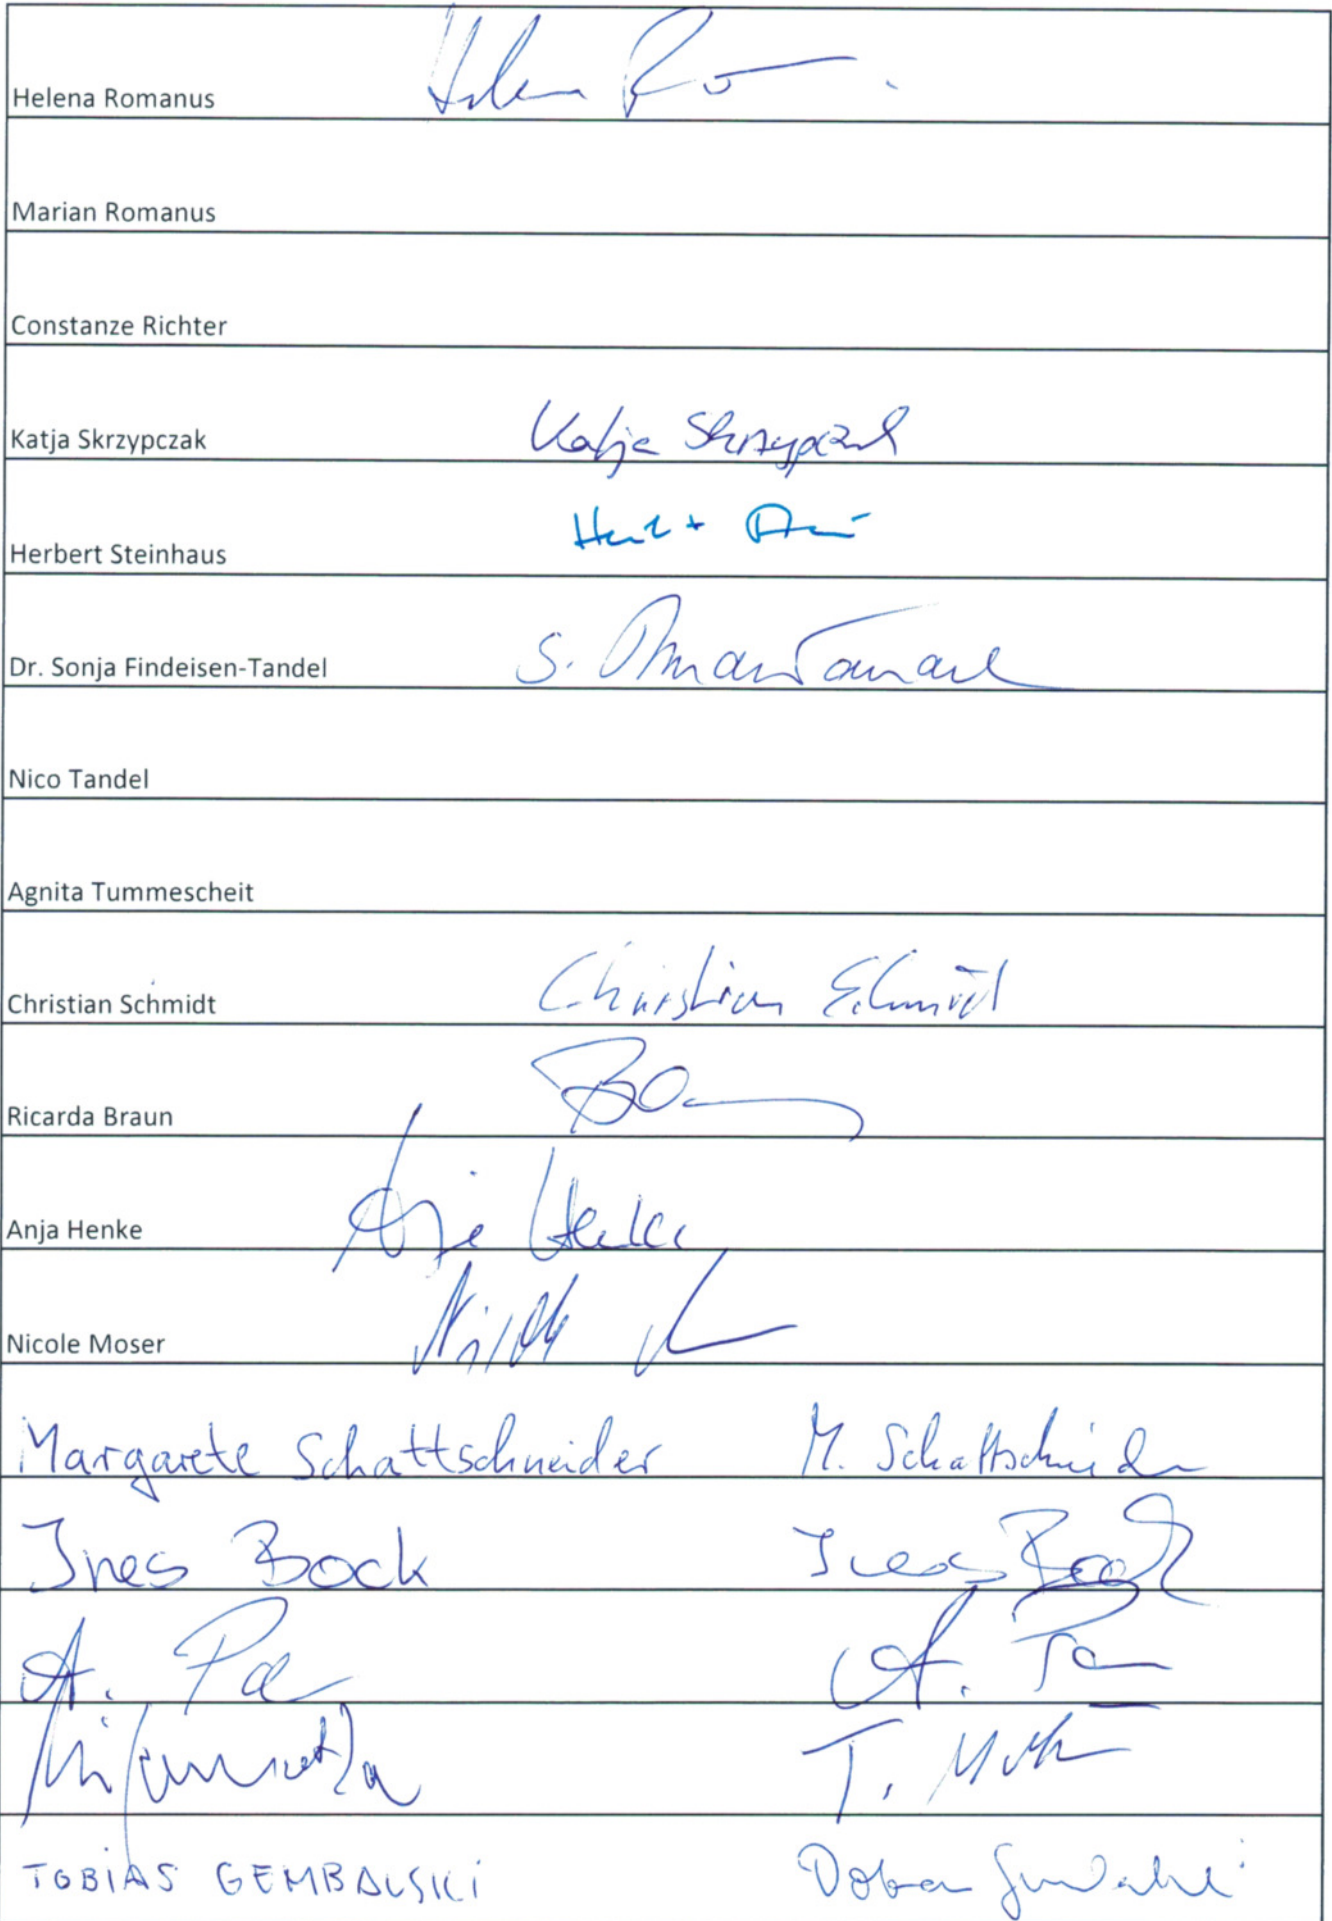 Helena Romanus
Marian Romanus
Constanze Richter
Katja Skrzypczak Katja Skrzypczak
Herbert Steinhaus
Dr. Sonja Findeisen-Tandel S.
Nico Tandel
Agnita Tummescheit
Christian Schmidt Christian Schmidt
Ricarda Braun
Anja Henke Anja Henke
Nicole Moser
Margarete Schattschneider M. Schattschneider
Ines Bock Ines Bock
A. A.
T.
TOBIAS GEMBALSKI